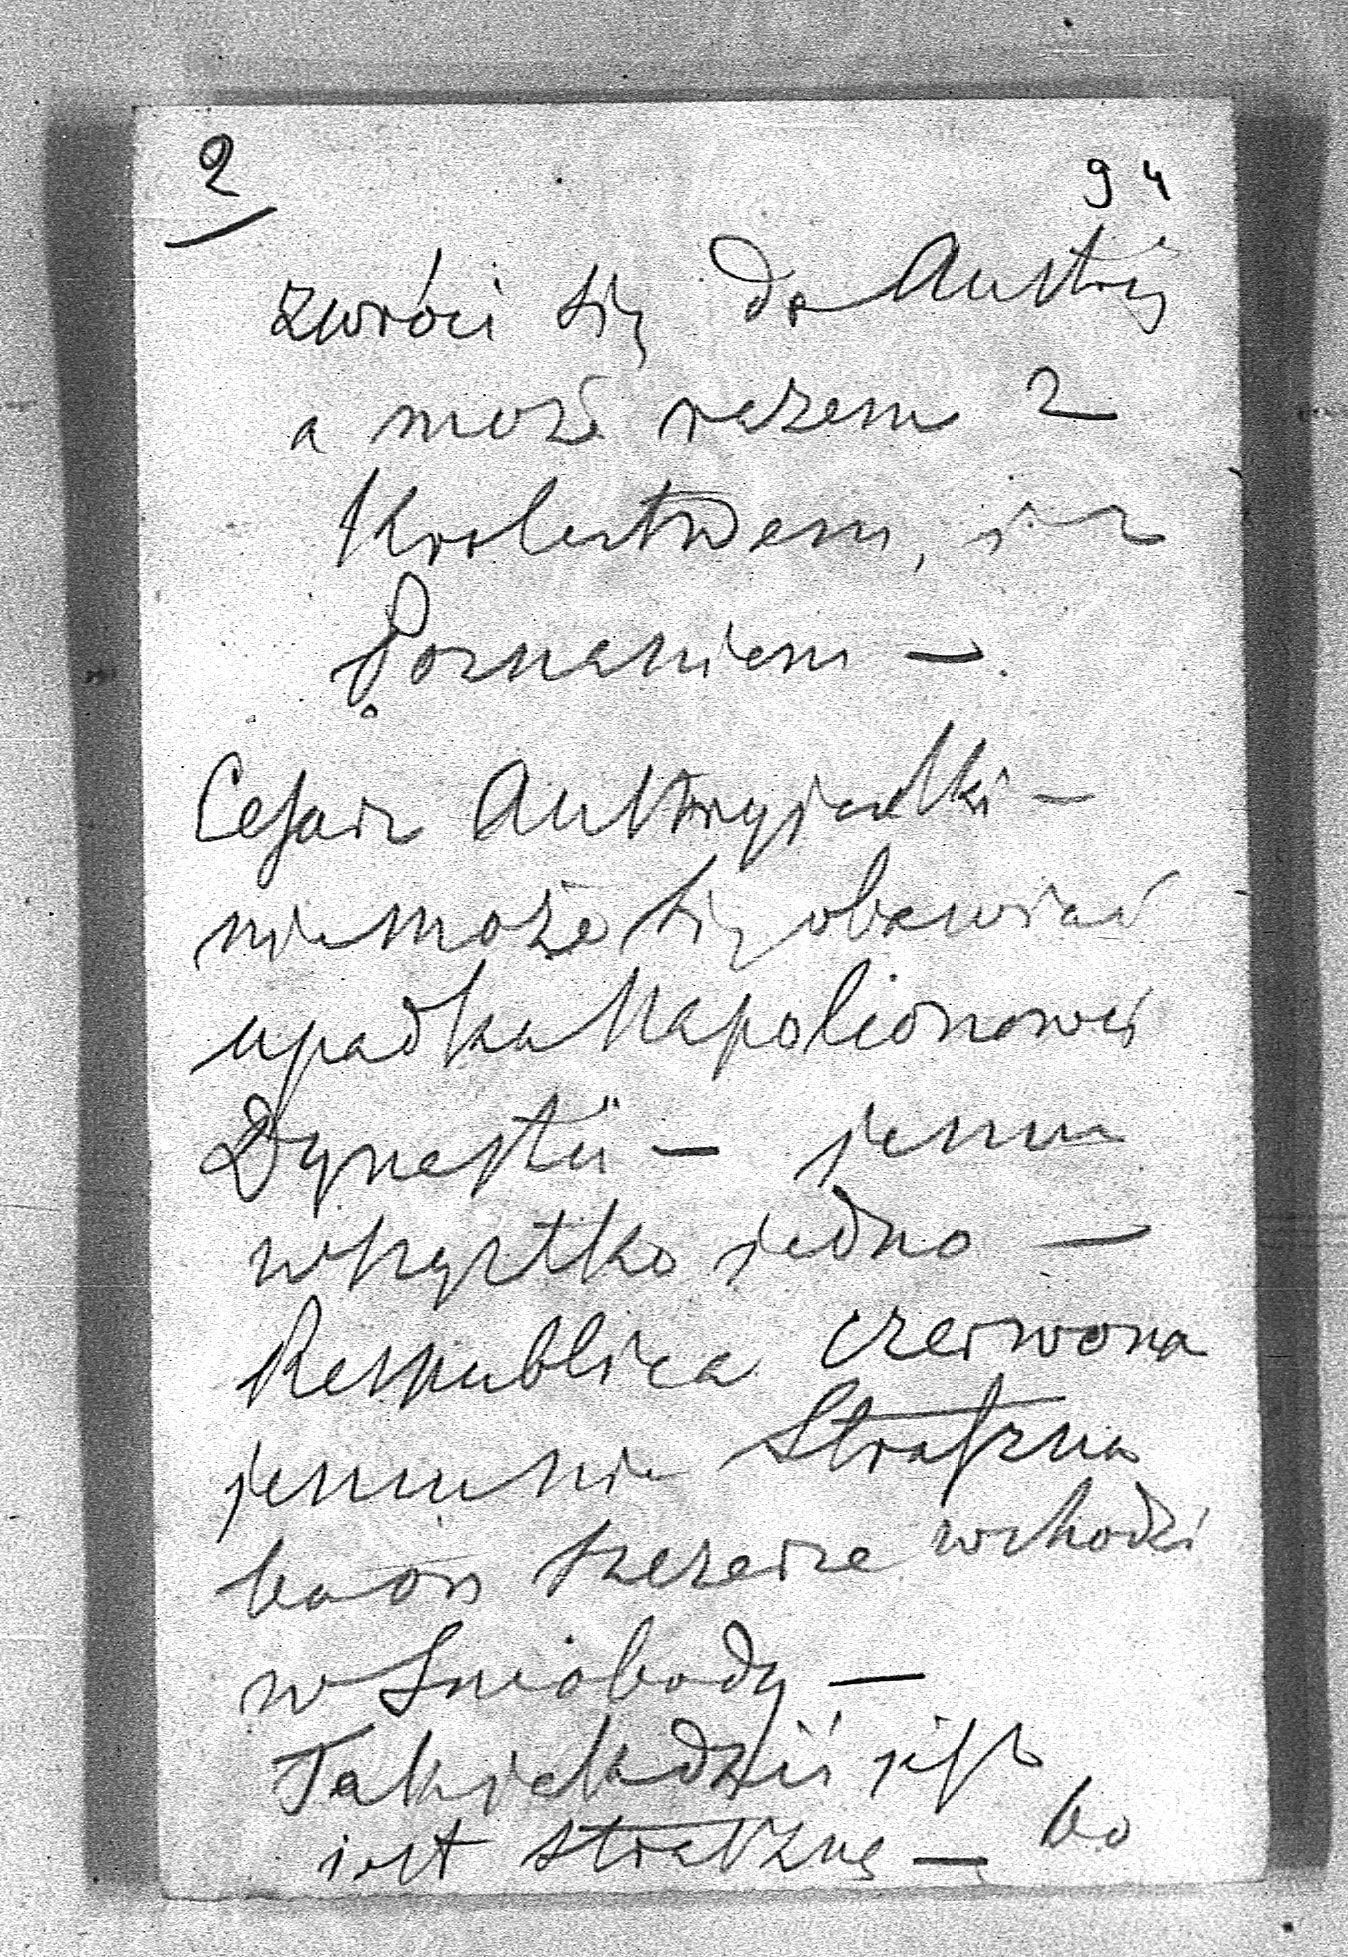 2
94
zwróci się do Austrij
a może razem z
Krolestwem, i z
Poznaniem —
Cesarz Austryjacki —
nie może się obawiać
upadku Napolionowej
Dynastii — jemu
wszystko jedno —
Respublica czerwona
jemu nie Straszna
bo on szczerze wchodzi
w Swobody —
Tak jak dziś jest
jest straszną — bo